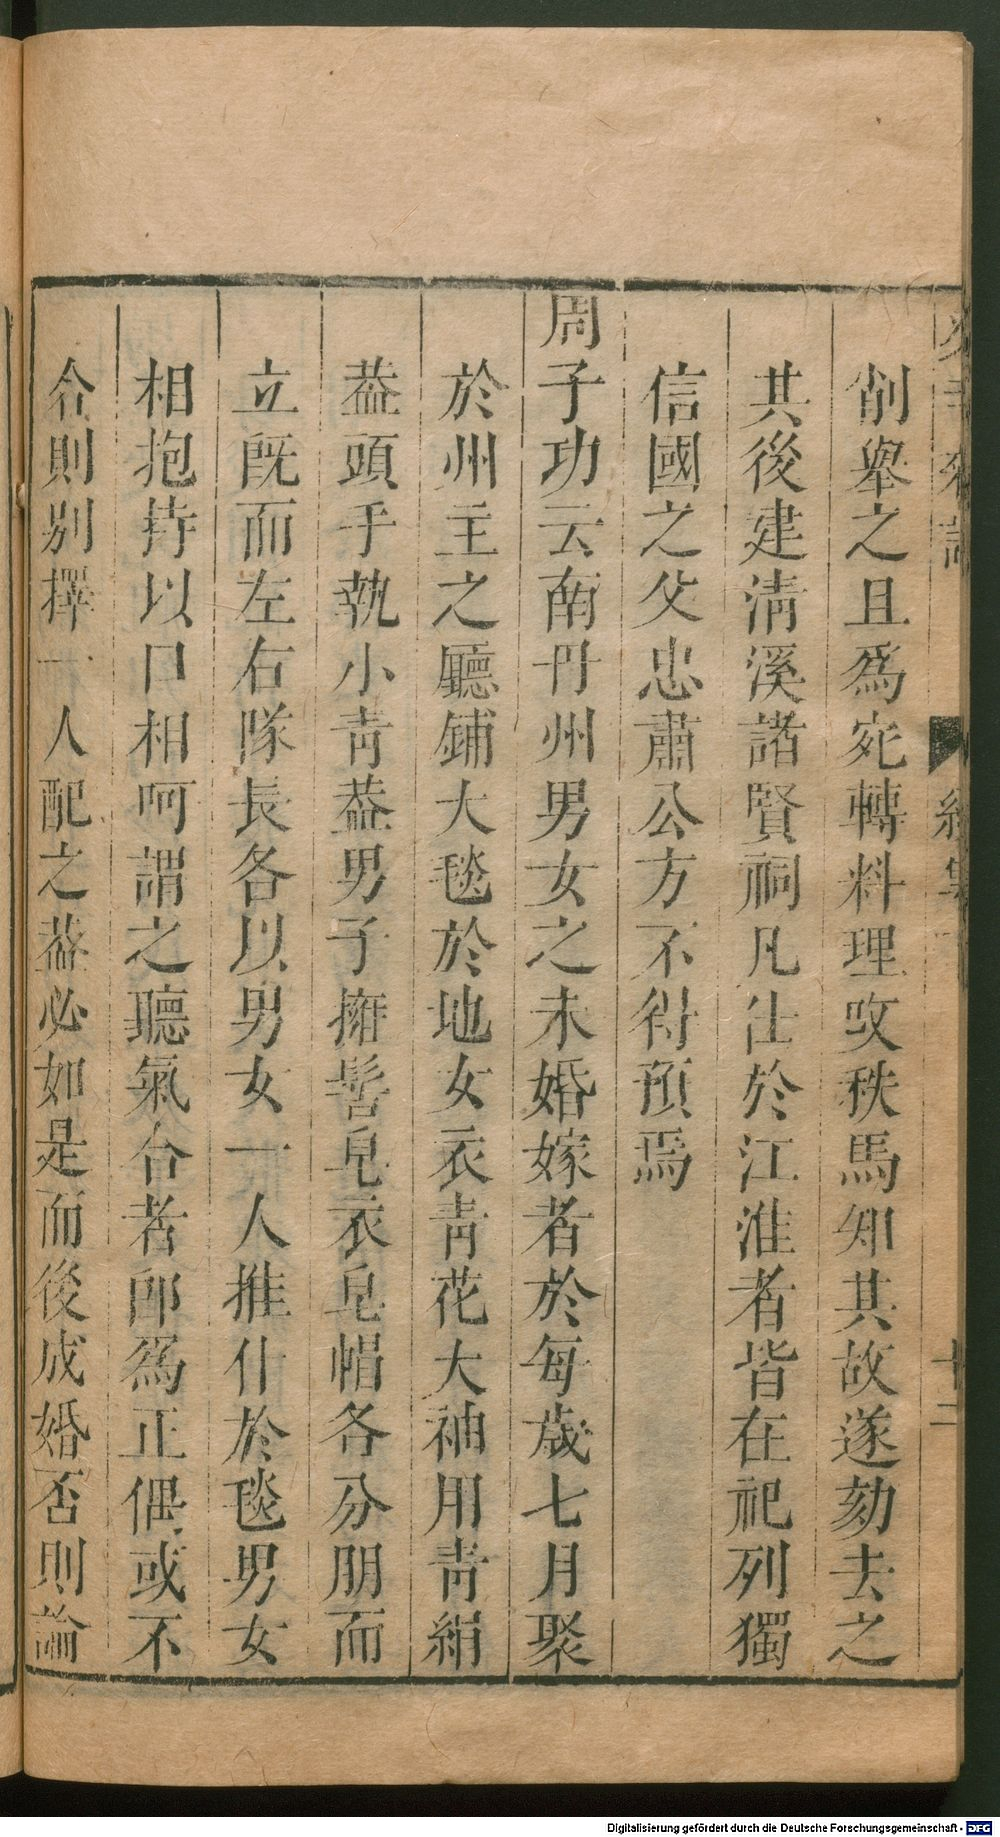 削舉之且爲宛轉料理改秩馬知其故遂劾去之
其後建淸溪諸賢祠凡仕於江淮者皆在祀列獨
信國之父忠肅公方不得預焉
周子功云南丹州男女之未婚嫁者於每歲七月聚
於州主之廳鋪大毯於地女衣靑花大袖用靑絹
葢頭手執小靑葢男子擁髻皂衣皂帽各分朋而
立旣而左右隊長各以男女一人推仆於毯男女
相抱持以口相呵謂之聽氣合者卽爲正偶或不
合則别擇一人配之葢必如是而後成婚否則論
十二
Digitalisierung gefördert durch die Deutsche Forschungsgemeinschaft - DFG